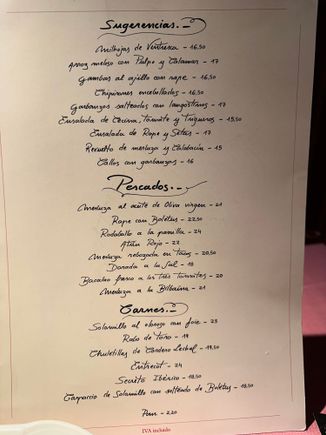 Sugerencias.-
Milhojas de Ventresca - 16,50
Arroz meloso con Pulpo y Calamar - 17
Gambas al ajillo con rape - 16,50
Chipirones encebollados - 16,50
Garbanzos salteados con langostinos - 17
Ensalada de Cecina, Tomate y Trigueros - 15,50
Ensalada de Rape y Setas - 17
Revuelto de merluza y Calabacín - 15
Callos con garbanzos - 16
Pescados.-
Merluza al aceite de Oliva virgen - 21
Rape con Boletus - 22,50
Rodaballo a la parrilla - 24
Atún Rojo - 22
Merluza rebozada en Tacos - 20,50
Dorada a la Sal - 18
Bacalao fresco a los Tres Tomates - 20
Merluza a la Bilbaína - 21
Carnes.-
Solomillo al obrogo con foie - 23
Rabo de Toro - 19
Chuletillas de Cordero Lechal - 19,50
Entrecot - 24
Secreto Ibérico - 18,50
Carpaccio de Solomillo con salteado de Boletus - 18,50
Pan - 2,20
IVA incluido